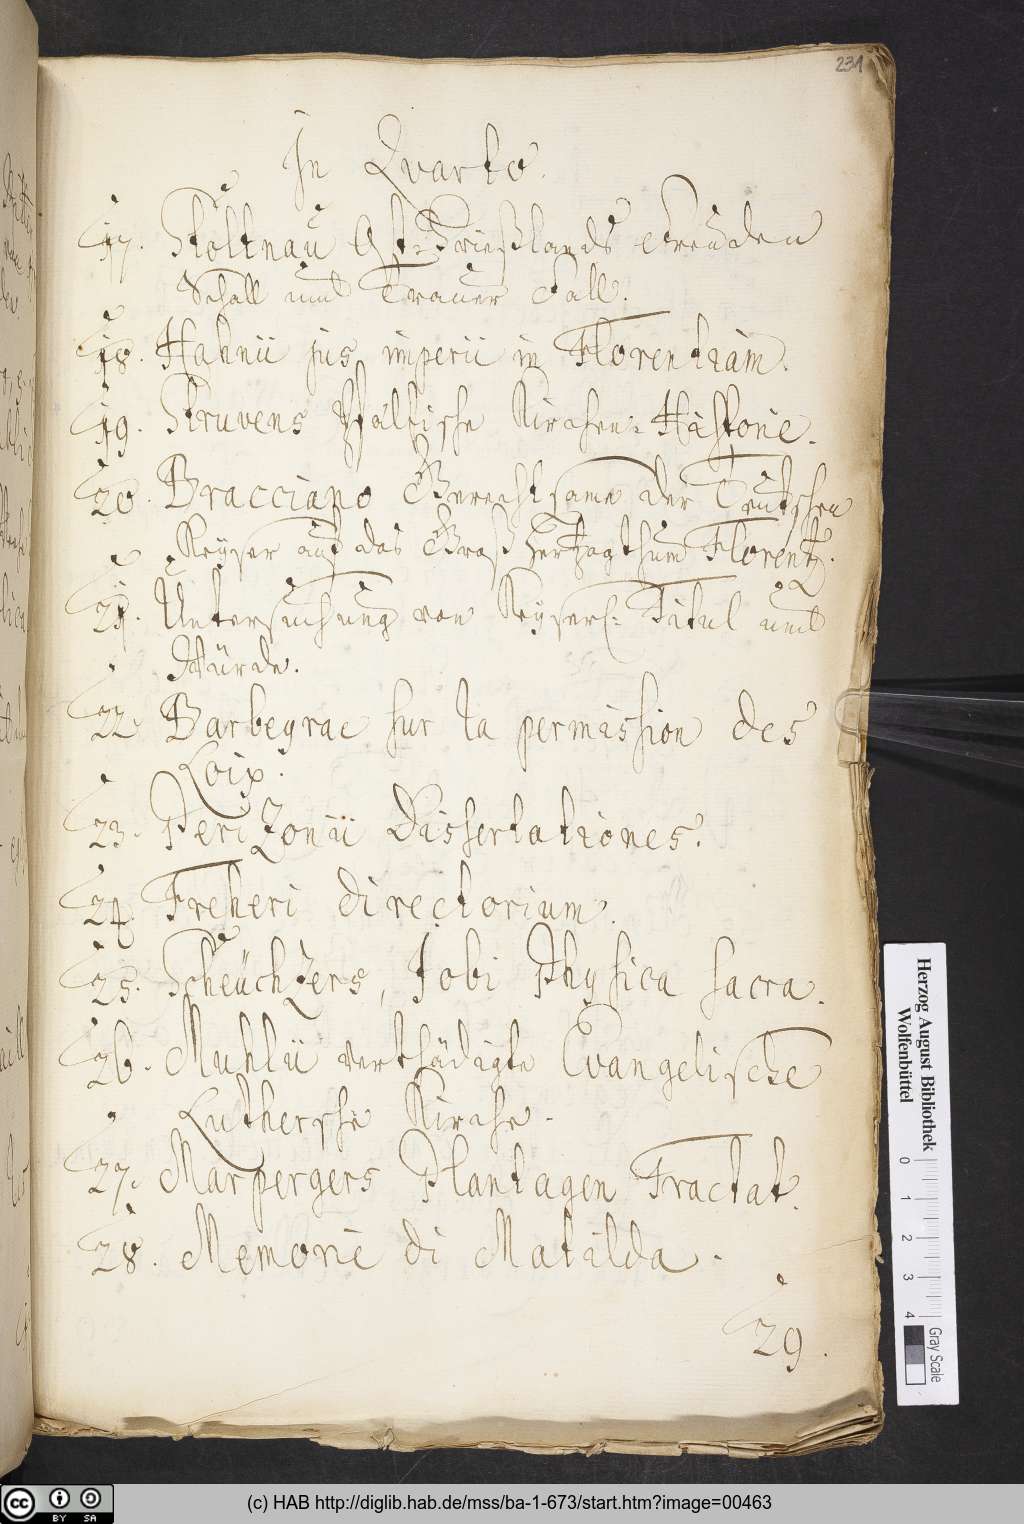 231
In Quarto.
17. Stoltnau Ost-Frießlands Freuden
Schall und Trauer Fall.
18. Hahnii jus imperii in Florentiam.
19. Struvens Pfältzische Kirchen-Historie.
20. Bracciano Gerechtsame der Teutschen
Keyser auf das Groß Hertzogthum Florentz.
21. Untersuchung von Keyserl: Titul und
Würde.
22. Barbeyrac sur la permission des
Loix.
23. Perizonii Dissertationes.
24. Freheri directorium.
25. Scheüchzers, Jobi Physica sacra.
26. Muhlii verthädigte Evangelische
Luthersche Kirche.
27. Marpergers Plantagen Tractat.
28. Memorie di Matilda.
29.
Herzog August Bibliothek
Wolfenbüttel
0 1 2 3 4
Gray Scale
cc BY SA
(c) HAB http://diglib.hab.de/mss/ba-1-673/start.htm?image=00463